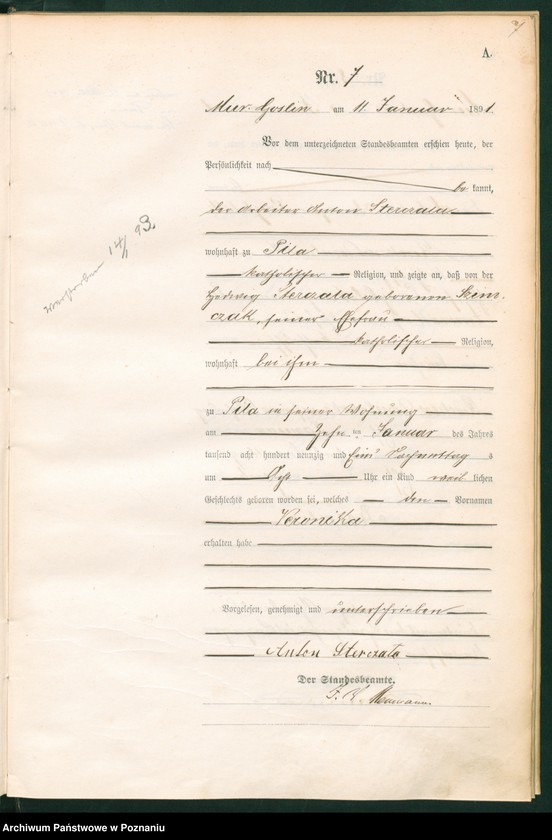 A.
Nr. 7
Mur. Goslin am 11. Januar 1891.
Vor dem unterzeichneten Standesbeamten erschien heute, der
Persönlichkeit nach
be kannt,
der Arbeiter Anton Sterczala
wohnhaft zu Pila
katholischer Religion, und zeigte an, daß von der
Hedwig Sterczala geborenen Szim-
czak, seiner Ehefrau
katholischer Religion,
wohnhaft bei ihm
zu Pila in seiner Wohnung
am Zehn ten Januar des Jahres
tausend acht hundert neunzig und Eins Nachmittag s
um Uhr ein Kind weib lichen
Geschlechts geboren worden sei, welches den Vornamen
Veronika
erhalten habe
Vorgelesen, genehmigt und unterschrieben
Anton Sterczala
Der Standesbeamte.
verstorben 14/1 93.
Archiwum Państwowe w Poznaniu